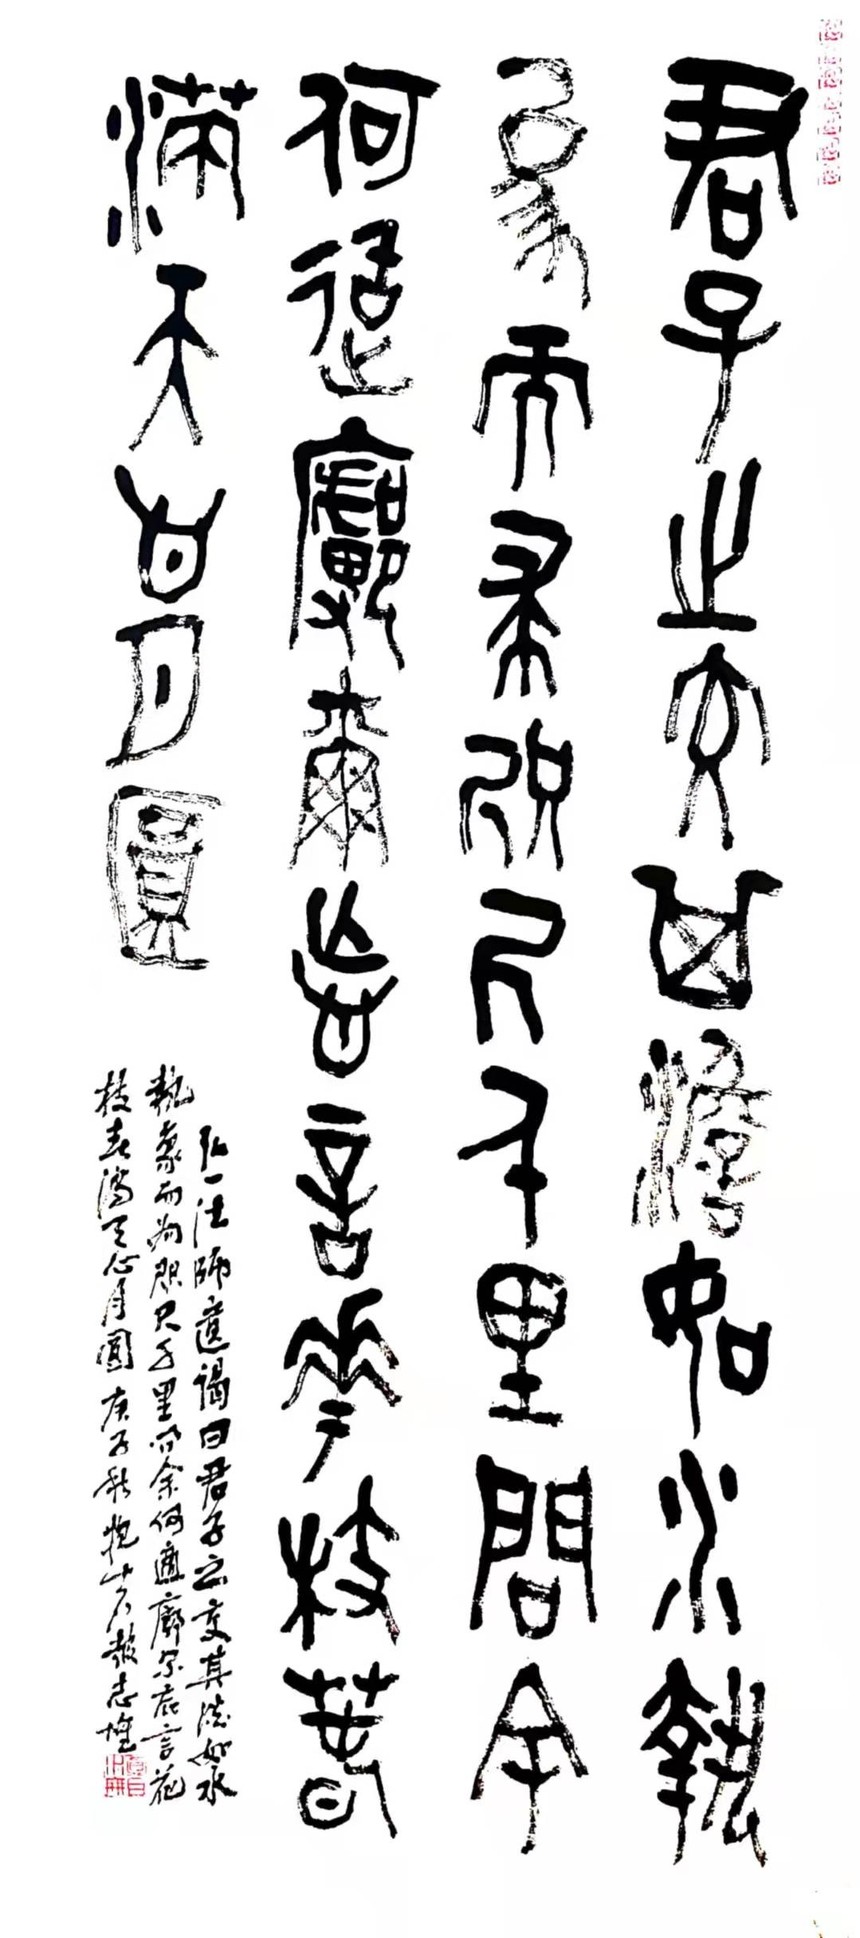 君子之交其淡如水執
象而求咫尺千里問余
何適廓爾忘言華枝春
滿天心月圓
弘一法師遺偈曰君子之交其淡如水
執象而求咫尺千里問余何適廓尔忘言花
枝春滿天心月圓庚子秋